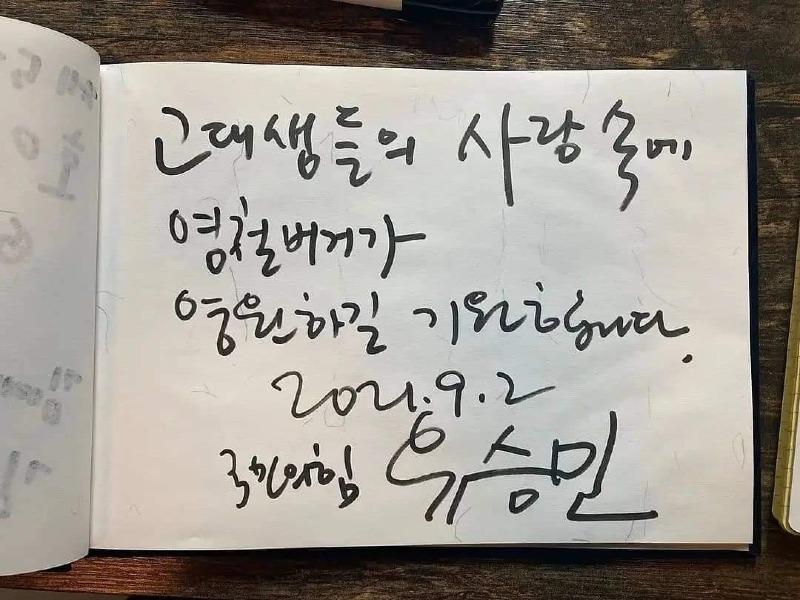 고대생들의 사랑 속에
영철버거가
영원하길 기원합니다.
2021.9.2
국민의힘 유승민